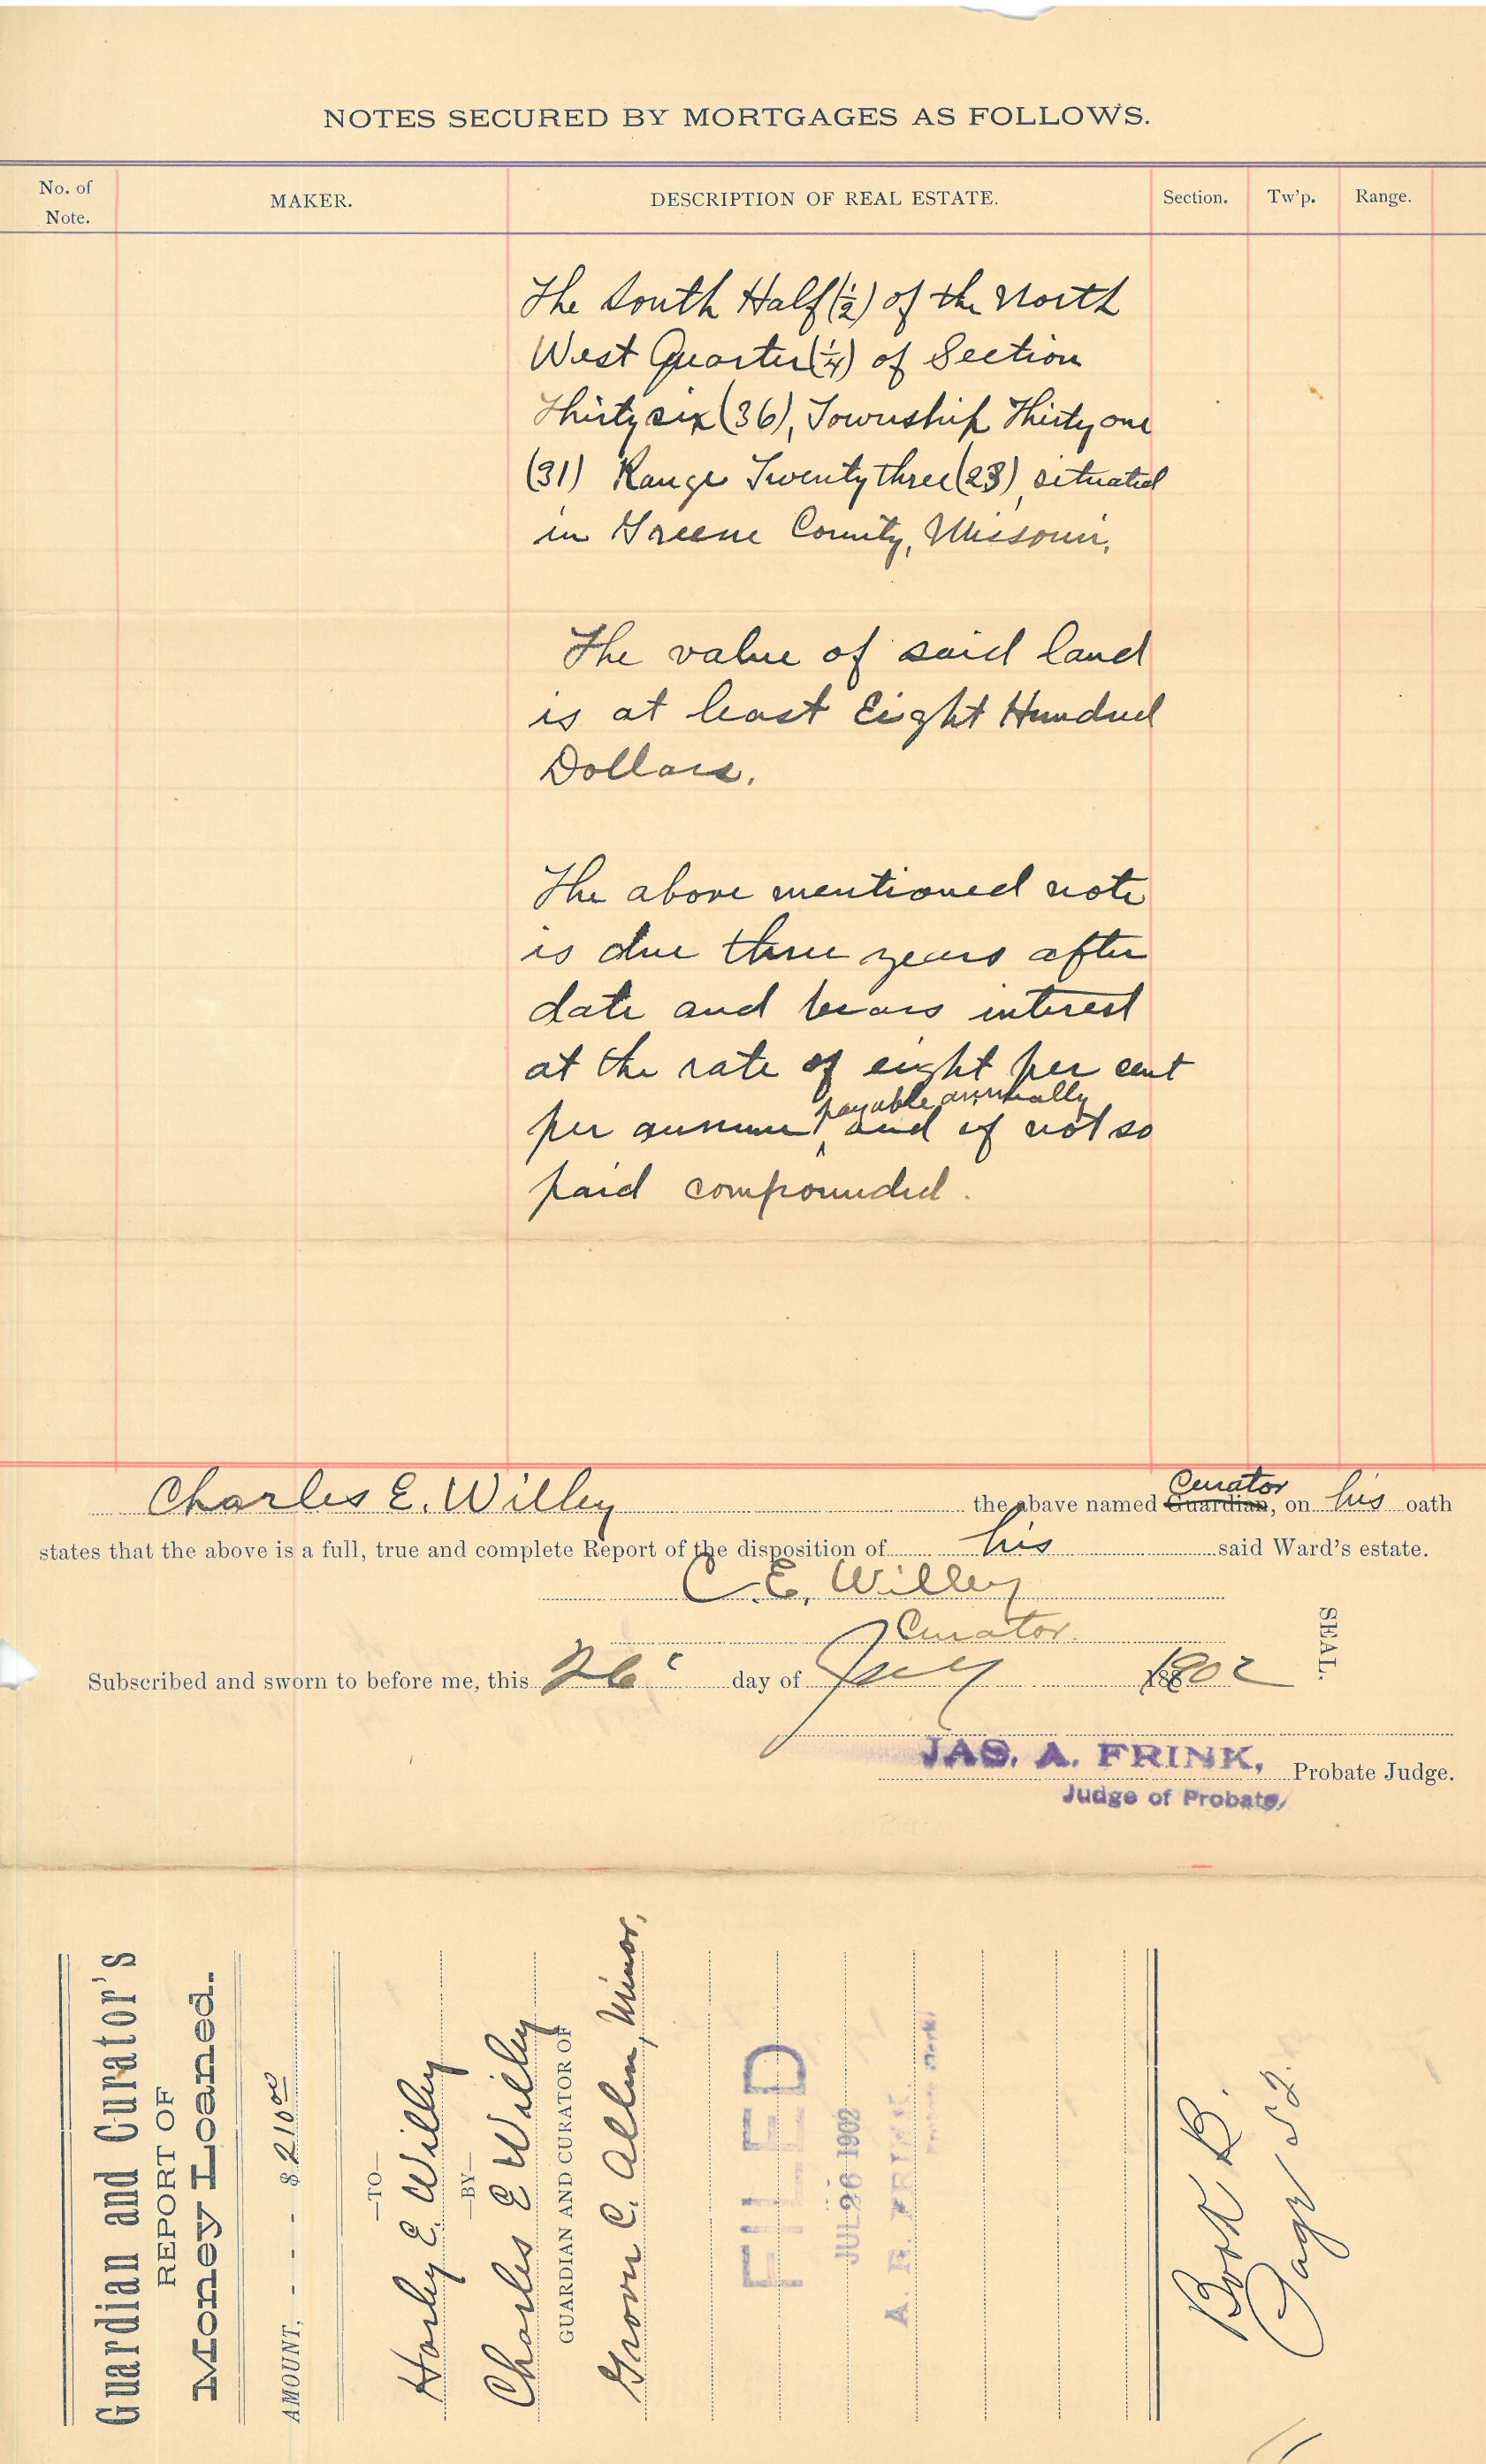 NOTES SECURED BY MORTGAGES AS FOLLOWS.
No. of Note. MAKER. DESCRIPTION OF REAL ESTATE. Section. Tw'p. Range.
The South Half (1/2) of the North
West Quarter (1/4) of Section
Thirty six (36), Township Thirty one
(31) Range Twenty three (23), situated
in Greene County, Missouri,
The value of said land
is at least Eight Hundred
Dollars.
The above mentioned note
is due three years after
date and bears interest
at the rate of eight per cent
payable annually
per annum, and if not so
paid compounded.
Curator
Charles E. Willey the above named Guardian, on his oath
states that the above is a full, true and complete Report of the disposition of his said Ward's estate.
C. E. Willey
Curator.
SEAL.
Subscribed and sworn to before me, this 26 day of July 1902
JAS. A. FRINK, Probate Judge.
Judge of Probate
Guardian and Curator's
REPORT OF
Money Loaned.
AMOUNT, - - - - $ 210 00
—TO—
Harley E. Willey
—BY—
Charles E Willey
GUARDIAN AND CURATOR OF
Grover C. Allen, Minor,
FILED
JUL 26 1902
Book B.
Page 52.